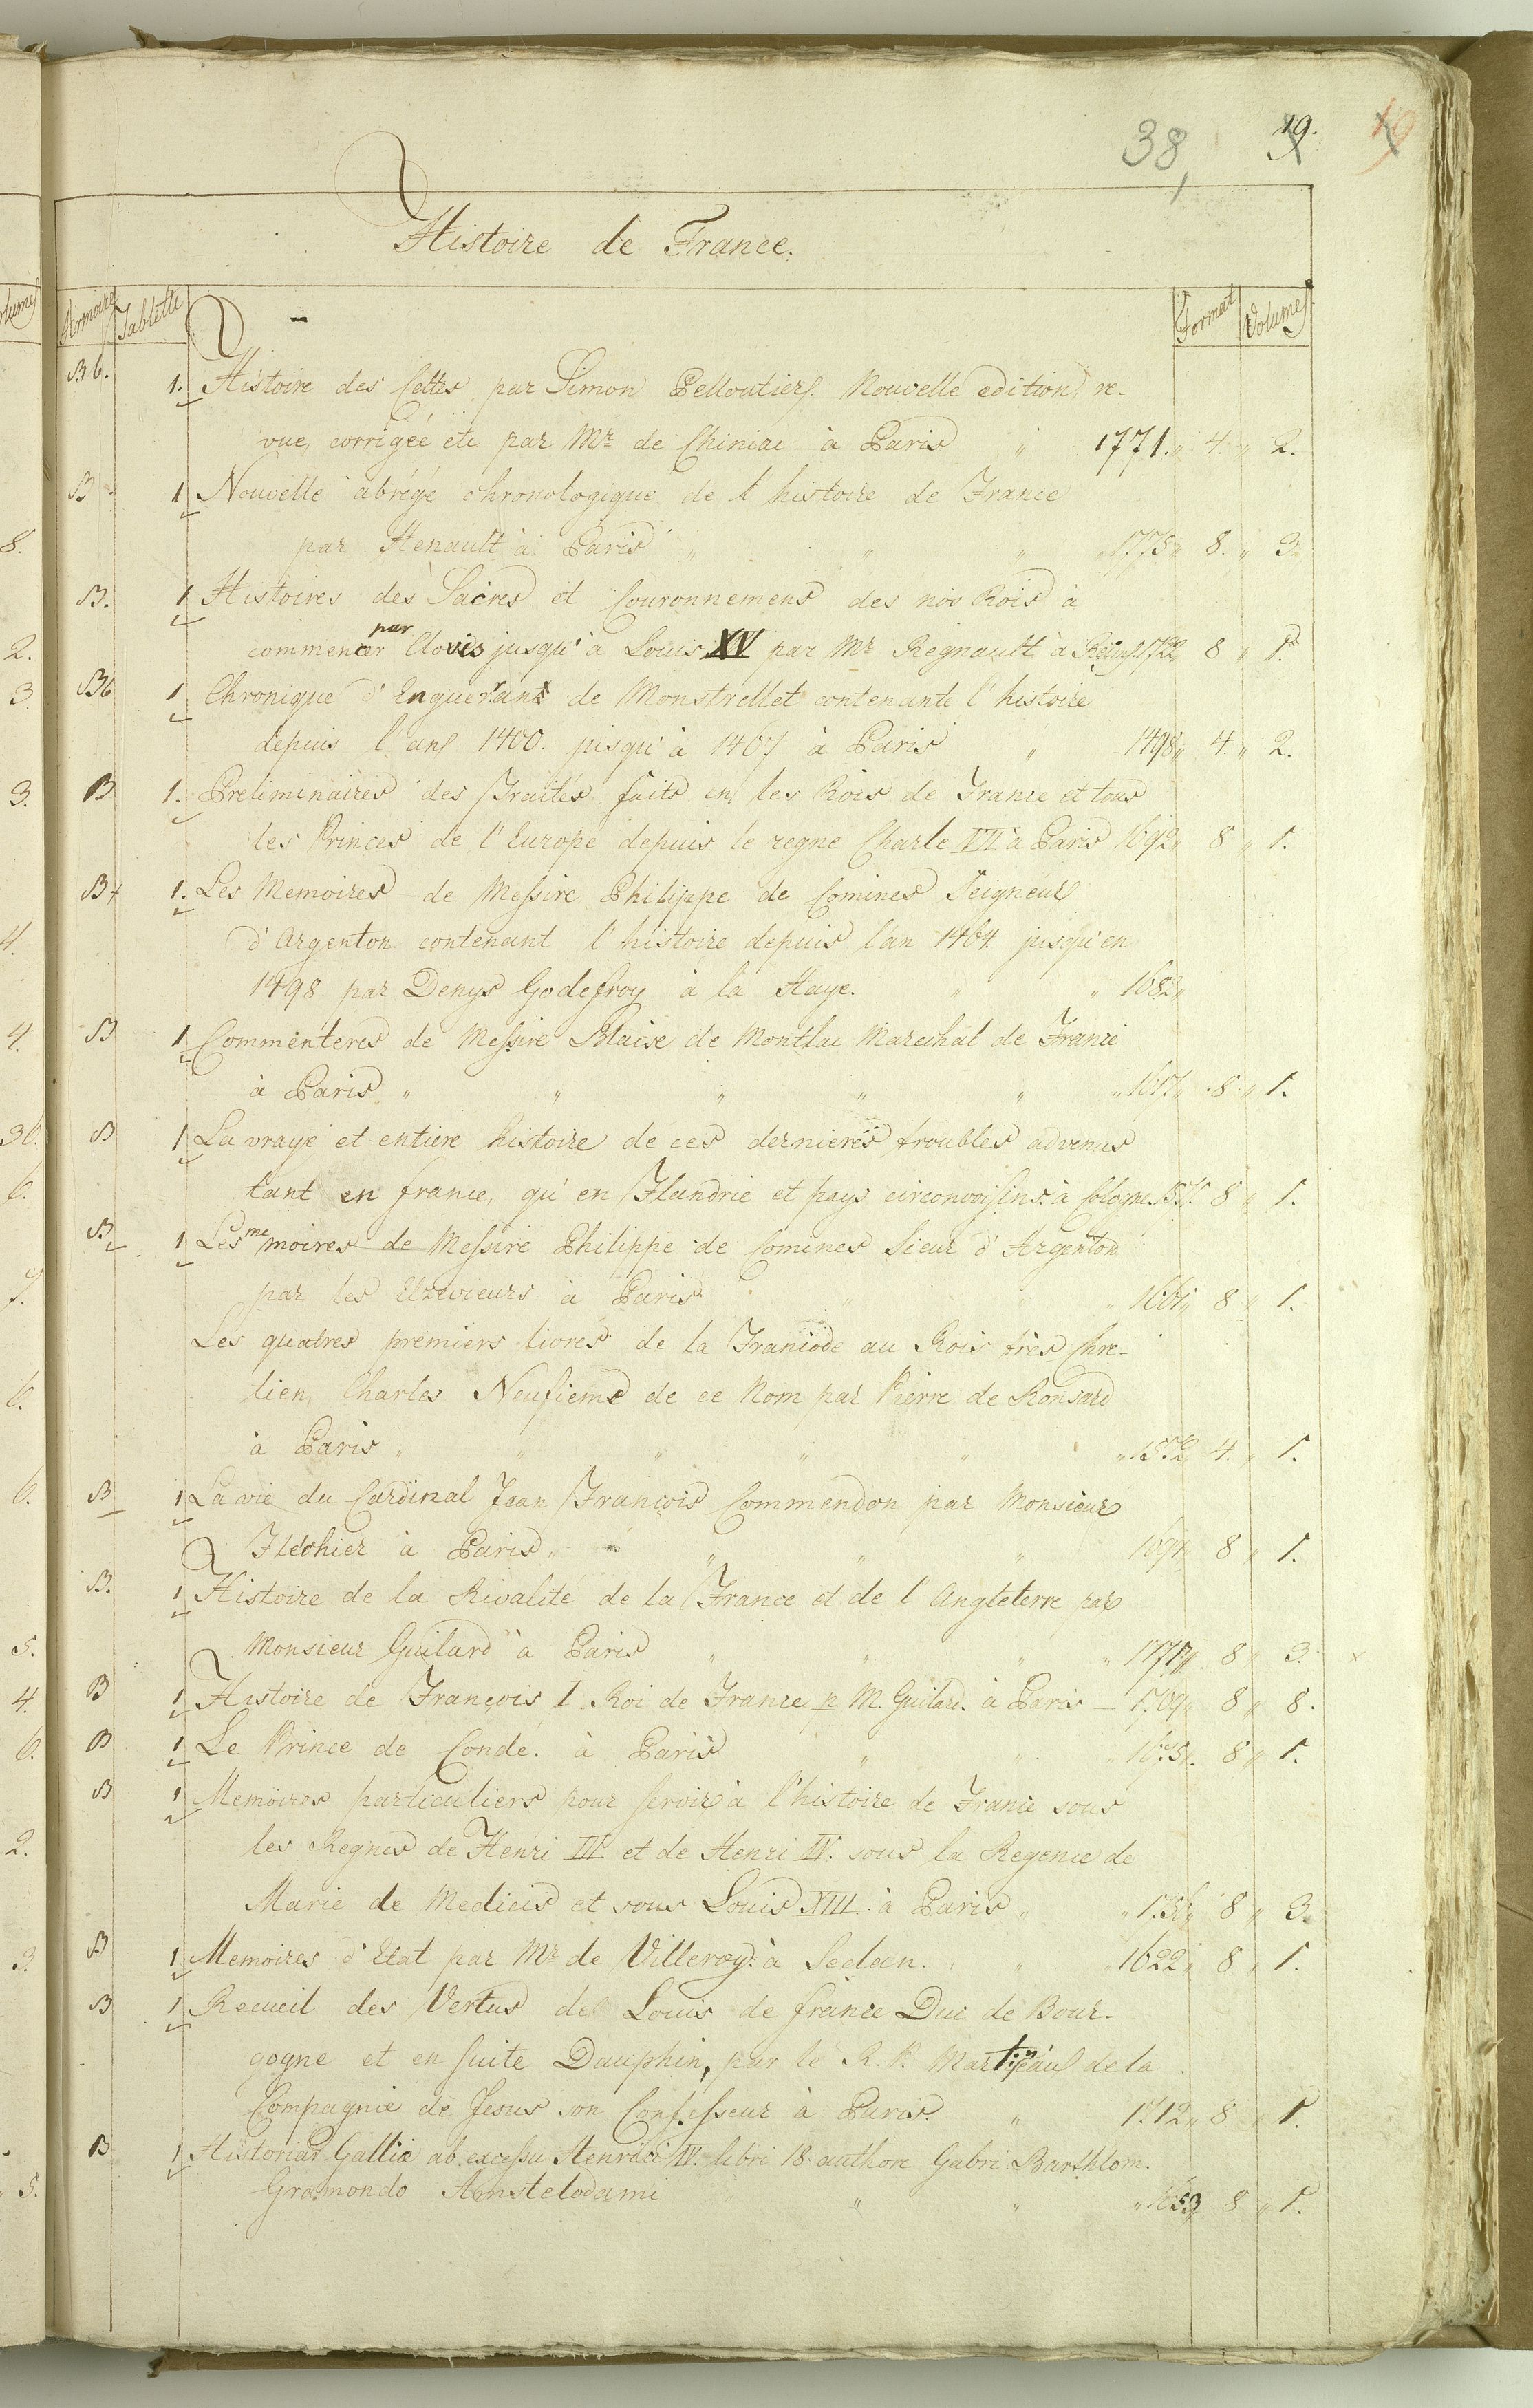 38, 19.
19
Histoire de France.
Armoire Tablette Format Volumes
B b. 1. Histoire des Celtes par Simon Pelloutier. Nouvelle edition re-
vue, corrigée etc par Mr de Chiniac à Paris " 1771. " 4. " 2.
B 1 Nouvelle abrégé chronologique de l'histoire de France
par Henault à Paris " " " " 1775 " 8. " 3.
B. 1 Histoires des Sacres et Couronnemens des nos Rois à
commencer par Clovis jusqu'à Louis XV par Mr Regnault à Reims 1722 8 " 1.
Bb 1 Chronique d'Enguerant de Monstrellet contenante l'histoire
depuis l'an 1400. jusqu'à 1467 à Paris " 1498 " 4. " 2.
B 1. Preliminaires des Traités faits en les Rois de France et tous
les Princes de l'Europe depuis le regne Charle VII. à Paris 1692 " 8 " 1.
B+ 1. Les Memoires de Messire Philippe de Comines Seigneur
d'Argenton contenant l'histoire depuis l'an 1464 jusqu'en
1498 par Denys Godefroy à la Haye. " " 1682 "
B 1 Commenteres de Messire Blaise de Montluc Marechal de France
à Paris " " " " " " 1617 " 8 " 1.
B 1 La vraye et entiere histoire de ces dernieres troubles advenus
tant en france, qu'en Flandrie et pays circonvoisins. à Cologne 1571. 8 " 1.
B 1 Les memoires de Messire Philippe de Comines Sieur d'Argenton
par les Elzevieurs à Paris " 1661 " 8 " 1.
Les quatres premiers livres de la Franiode au Rois très Chre-
tien, Charles Neufieme de ce Nom par Pierre de Ronsard
à Paris " " " " " " 1572 4. " 1.
B 1 La vie du Cardinal Jean François Commendon par Monsieur
Fléchier à Paris " " " " 1694 8 " 1.
B. 1 Histoire de la Rivalité de la France et de l'Angleterre par
Monsieur Guilard à Paris " " " " 1771 " 8 " 3.
B 1 Histoire de François I Roi de France p M. Guilard. à Paris — 1769 " 8 " 8.
B 1 Le Prince de Condé. à Paris " " " 1675. 8 " 1.
B 1 Memoires particuliers pour servir à l'histoire de France sous
les Regnes de Henri III et de Henri IV. sous la Regence de
Marie de Medicis et sous Louis XIII. à Paris " " 1756 " 8 " 3.
B 1 Memoires d'Etat par Mr de Villeroy. à Sedan. " " 1622 " 8 " 1.
B 1 Recueil des Vertus de Louis de france Duc de Bour-
gogne et en suite Dauphin, par le R. P. Martineau de la
Compagnie de Jesus son Confesseur à Paris. " 1712 " 8 " 1.
B 1 Historiar Galliæ ab excessu Henrici IV. libri 18 authore Gabri Barthlom.
Gramondo Amstelodami " " " 1653 8 " 1.